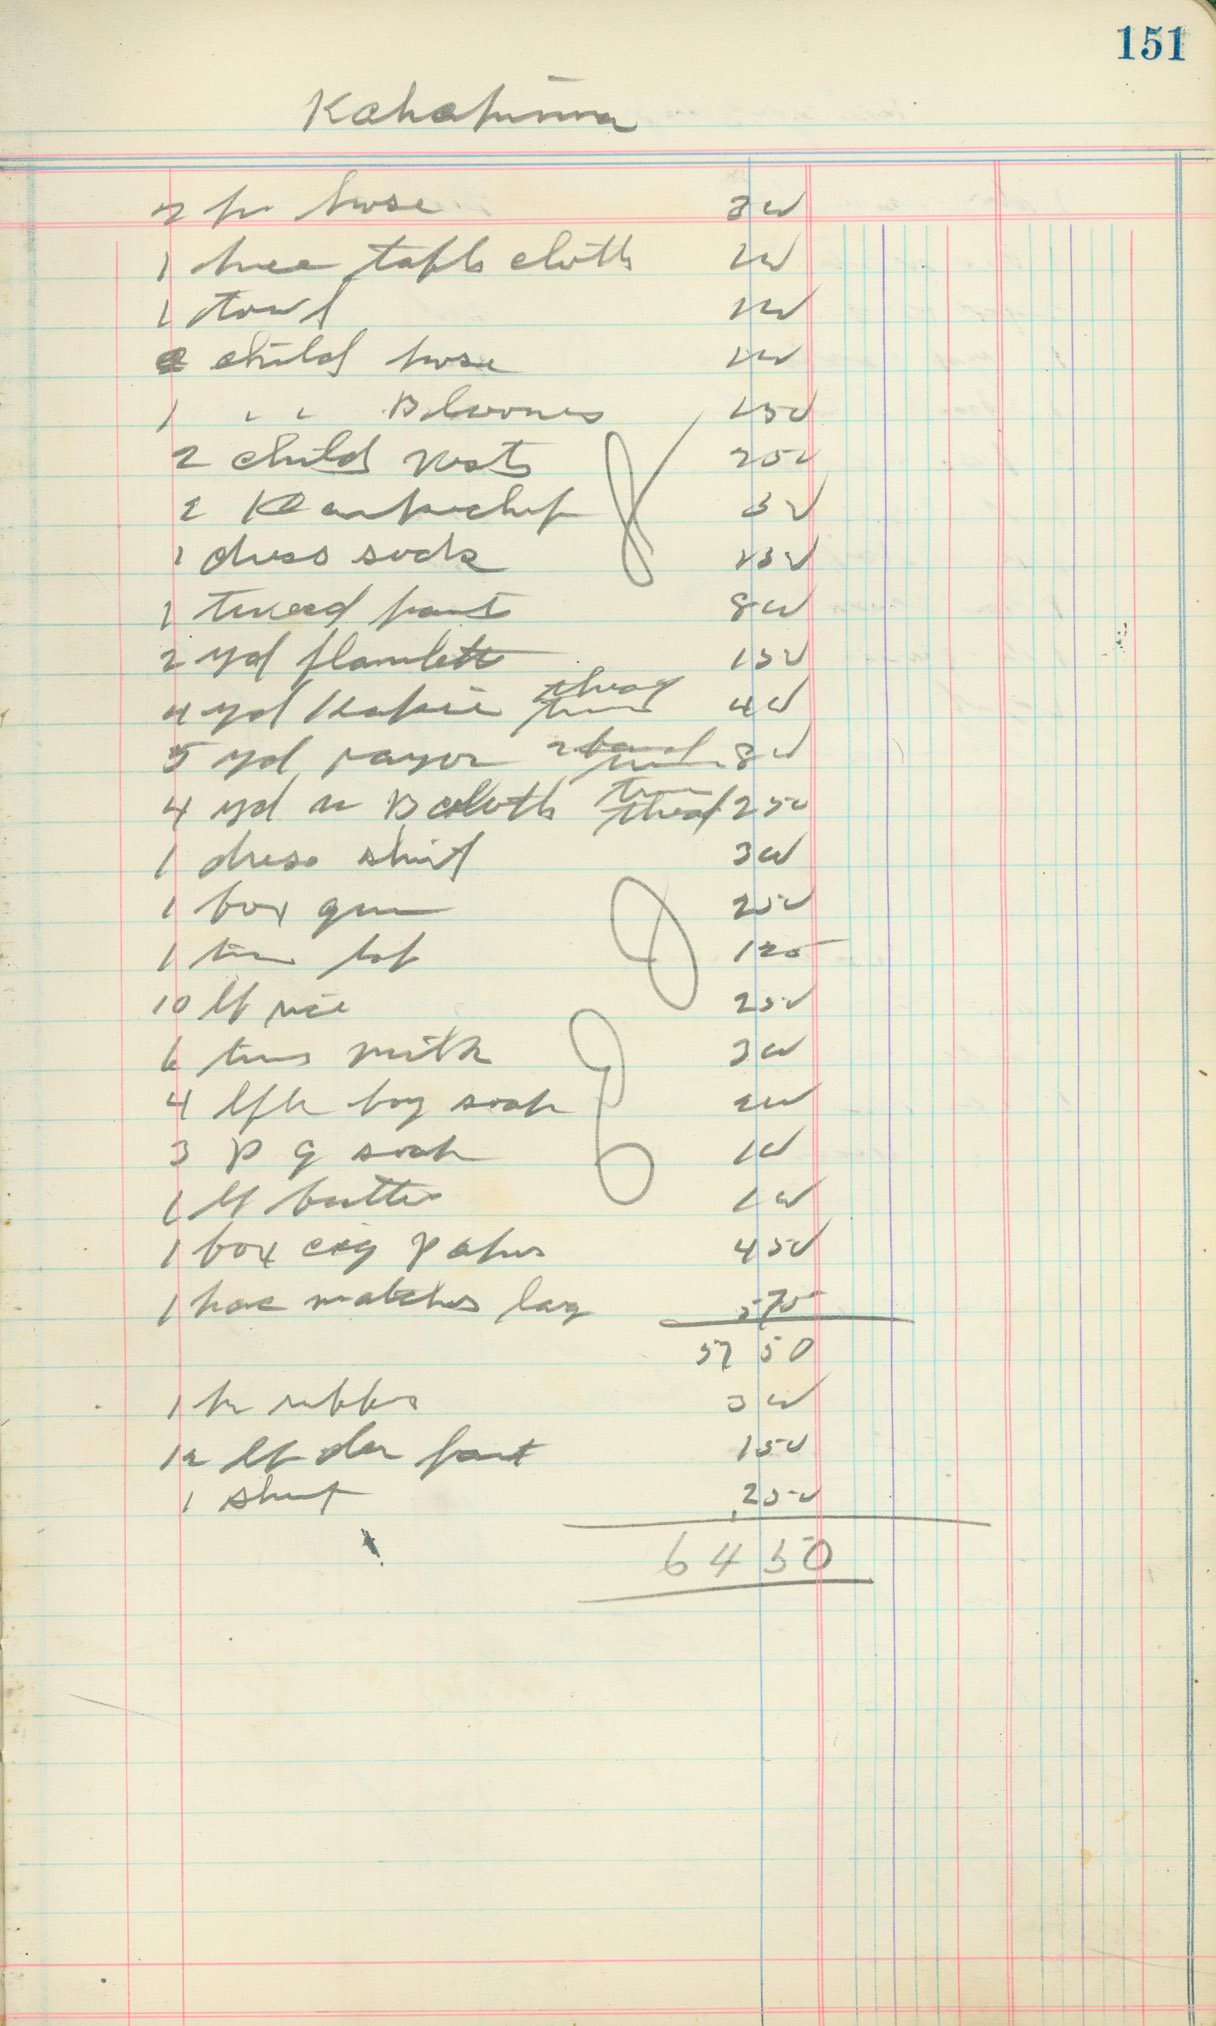 151
Kahapinwa
2 pr hose 3 00
1 table cloth 2 00
1 towl 1 00
child hose 1 00
1 " " Bloomers 1 50
2 child vests 2 50
2 Hankerchif 3
1 dress sock 1 50
1 tweed pant 8 00
2 yd flanlett 1 50
thread
4 yd 4 00
5 yd rayon 8 00
4 yd cloth thread 2 50
1 dress shirt 3 00
1 box gum 2 50
1 tin tob 1 25
10 lb rice 2 50
6 tins milk 3 00
4 lf boy soap 2 00
3 P G soap 1 00
1 lb butter 1 00
1 box cig paper 4 50
1 matches larg 75
57 50
1 pr rubbers 3 00
12 lb pant 1 50
1 shirt 2 50
64 50